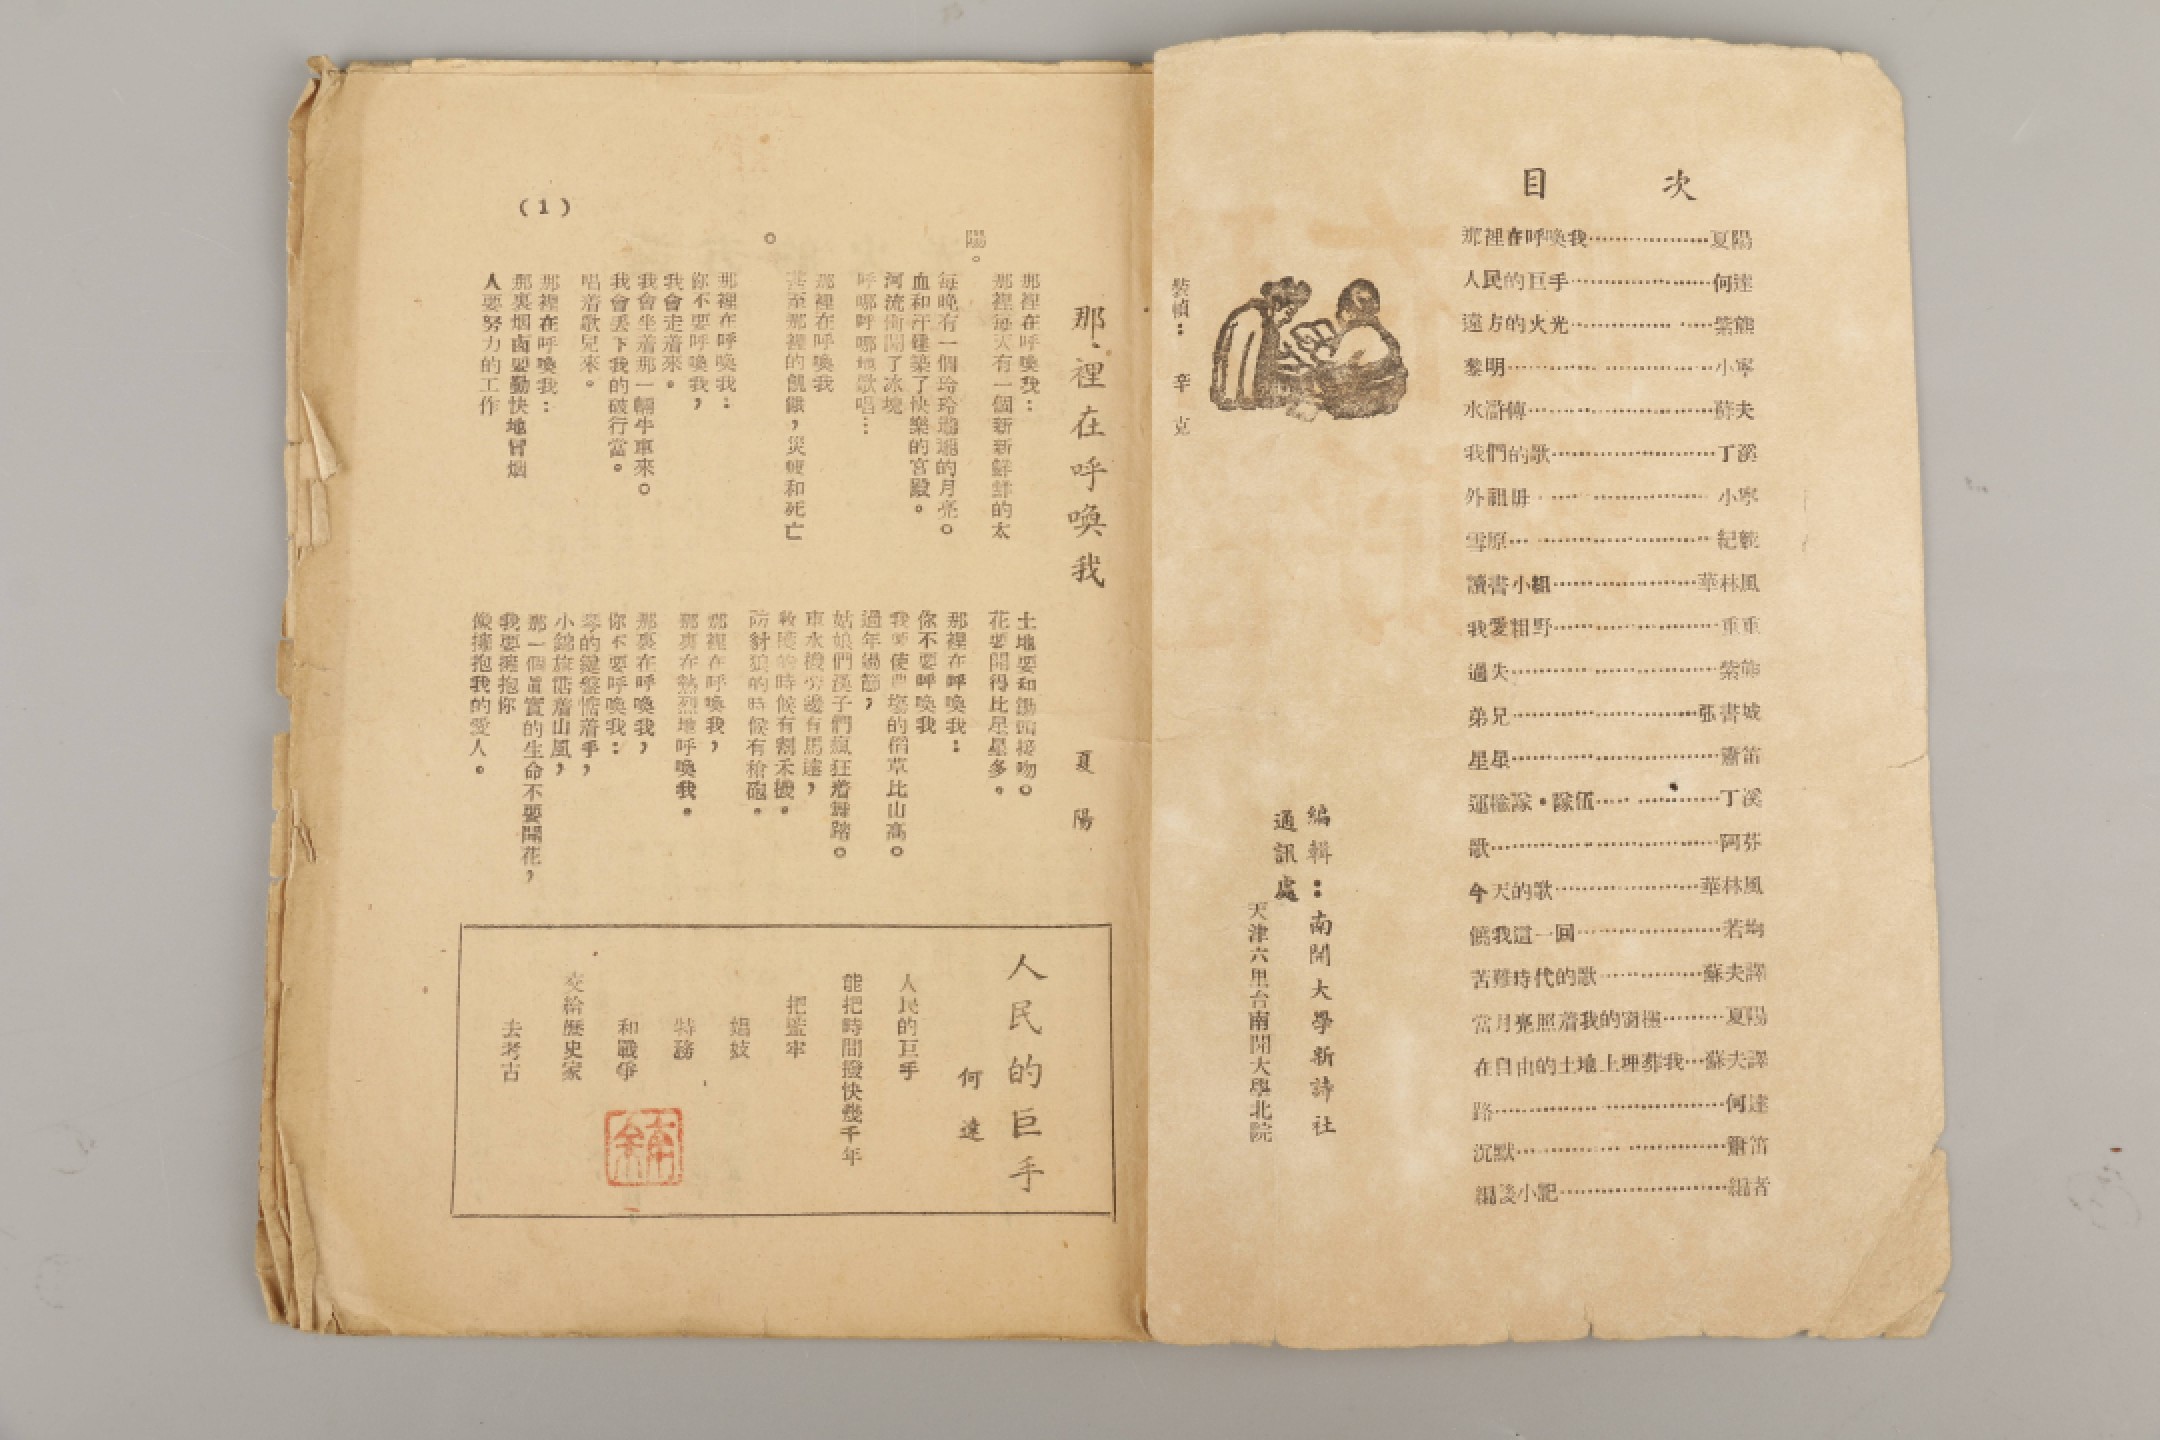 目 次
那裡在呼喚我…………………夏陽
人民的巨手…………………何達
遠方的火光…………………紫熊
黎明…………………小寧
水滸傳…………………蘇夫
我們的歌…………………丁溪
外祖母…………………小寧
雪原…………………紀
讀書小組…………………華林風
我愛粗野…………………重重
過失…………………紫熊
弟兄…………………張書城
星星…………………蕭笛
運輸隊•隊伍…………………丁溪
歌…………………阿芬
今天的歌…………………華林風
我這一回…………………若
苦難時代的歌…………………蘇夫譯
當月亮照着我的窗櫺………夏陽
在自由的土地上埋葬我…蘇夫譯
路…………………何達
沉默…………………蕭笛
編後小記…………………編者
編輯：南開大學新詩社
通訊處
天津六里台南開大學北院
裝幀： 辛克
那裡在呼喚我
夏陽
那裡在呼喚我：
那裡每天有一個新新鮮鮮的太
陽。
每晚有一個玲玲瓏瓏的月亮。
血和汗建築了快樂的宮殿。
河流衝開了冰境
呼哪呼哪地歌唱…
那裡在呼喚我
甚至那裡的飢餓，災難和死亡
。
那裡在呼喚我：
你不要呼喚我，
我會走着來。
我會坐着那一輛牛車來。
我會丟下我的破行當。
唱着歌兒來。
那裡在呼喚我：
那裏烟囱要勤快地冒烟
人要努力的工作
土地要和鋤頭接吻。
花要開得比星星多。
那裡在呼喚我：
你不要呼喚我
我要使農場的稻草比山高。
過年過節，
姑娘們漢子們瘋狂着舞蹈。
車水機旁邊有馬達，
收穫的時候有割禾機。
防豺狼的時候有槍砲。
那裡在呼喚我，
那裏在熱烈地呼喚我。
那裏在呼喚我，
你不要呼喚我：
琴的鍵盤惦着手，
小錦旗惦着山風，
那一個眞實的生命不要開花，
我要擁抱你
像擁抱我的愛人。
人民的巨手
何達
人民的巨手
能把時間撥快幾千年
把監牢
娼妓
特務
和戰爭
交給歷史家
去考古
(1)